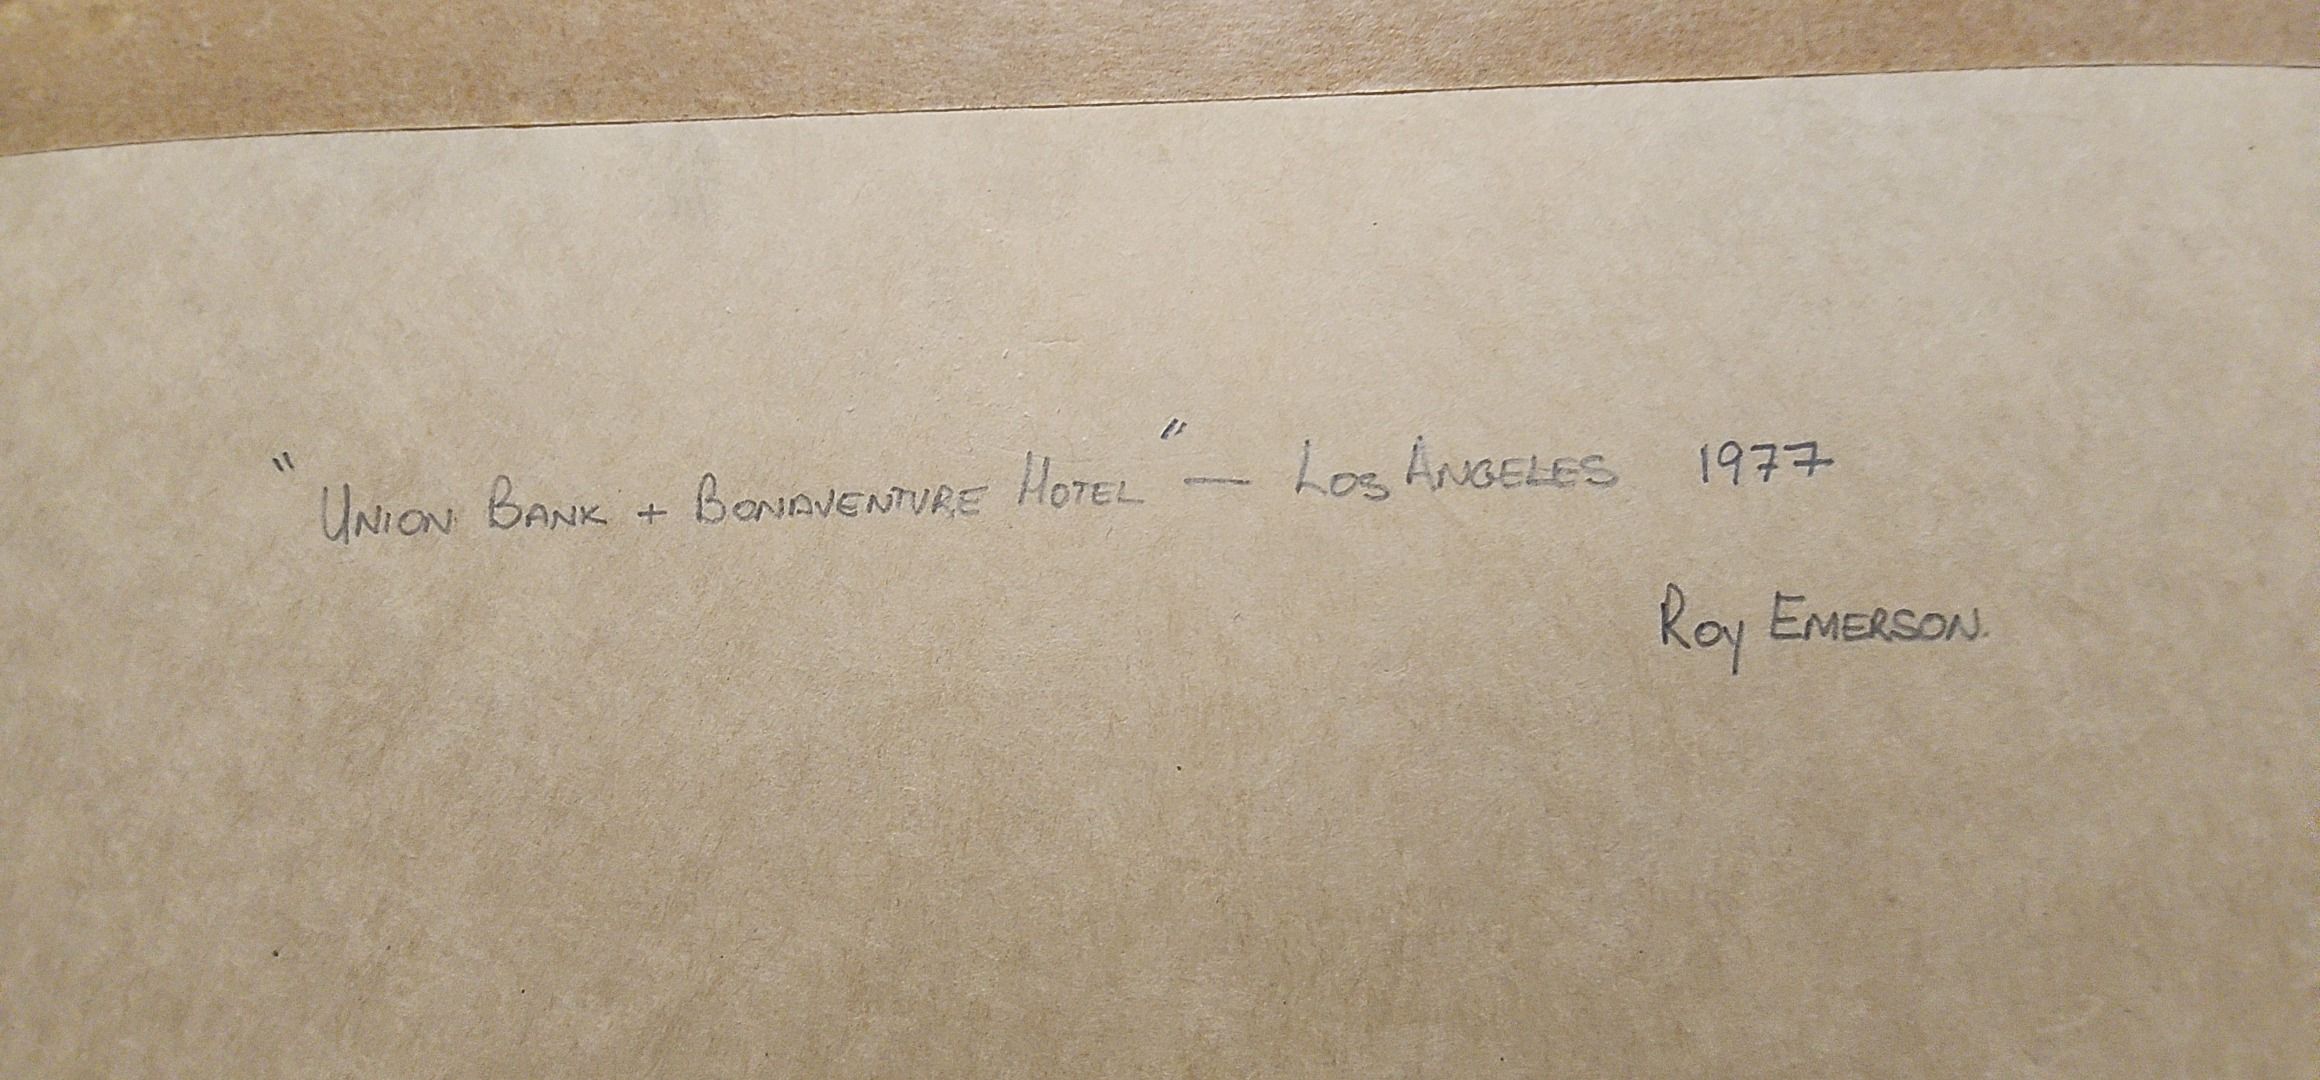 "UNION BANK + BONAVENTURE HOTEL" — LOS ANGELES 1977
ROY EMERSON.